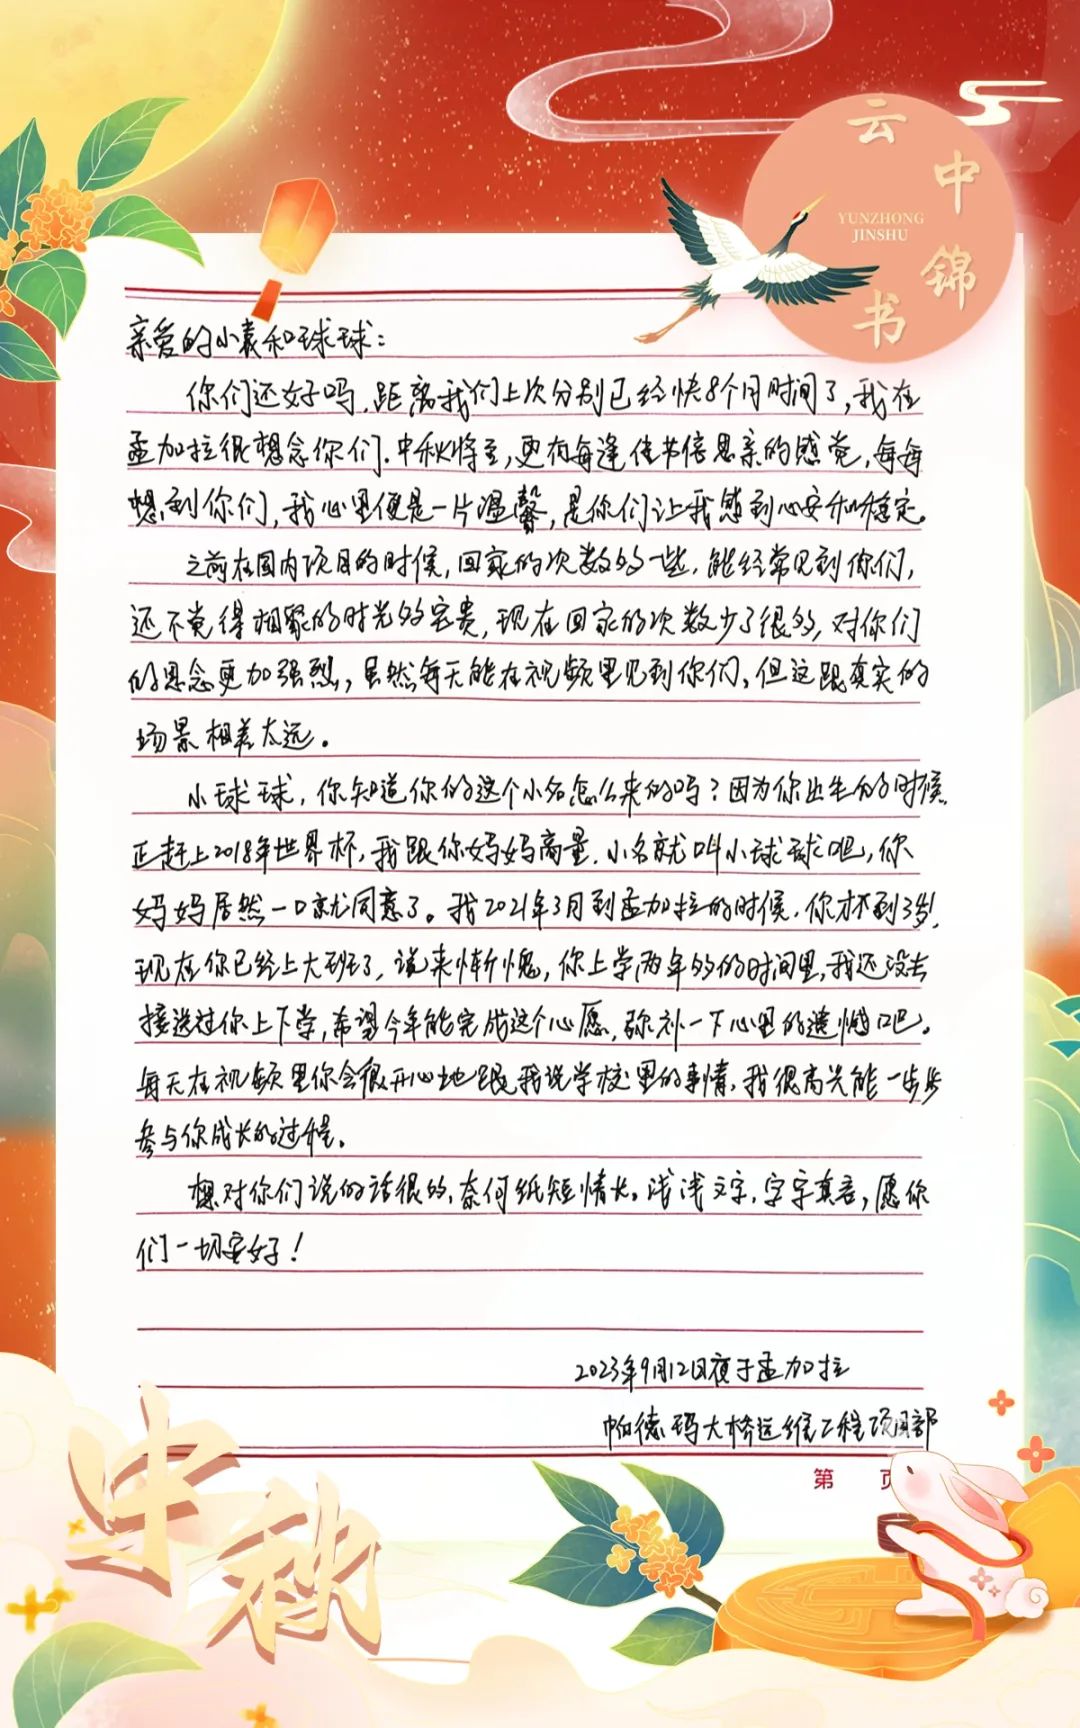 云中锦书
YUNZHONG
JINSHU
亲爱的小袁和球球：
你们还好吗，距离我们上次分别已经快8个月时间了，我在
孟加拉很想念你们，中秋将至，更有每逢佳节倍思亲的感觉，每每
想到你们，我心里便是一片温馨，是你们让我感到心安和稳定。
之前在国内项目的时候，回家的次数多一些，能经常见到你们，
还不觉得相聚的时光多宝贵，现在回家的次数少了很多，对你们
的思念更加强烈，虽然每天能在视频里见到你们，但这跟真实的
场景相差太远。
小球球，你知道你的这个小名怎么来的吗？因为你出生的时候，
正赶上2018年世界杯，我跟你妈妈商量，小名就叫小球球吧，你
妈妈居然一口就同意了。我2021年3月到孟加拉的时候，你才不到3岁，
现在你已经上大班了，说来惭愧，你上学两年多的时间里，我还没去
接送过你上下学，希望今年能完成这个心愿，弥补一下心里的遗憾吧。
每天在视频里你会很开心地跟我说学校里的事情，我很高兴能一步步
参与你成长的过程。
想对你们说的话很多，奈何纸短情长，浅浅文字，字字真言，愿你
们一切安好！
2023年9月12日夜于孟加拉
帕德玛大桥运维工程项目部
第 页
中秋